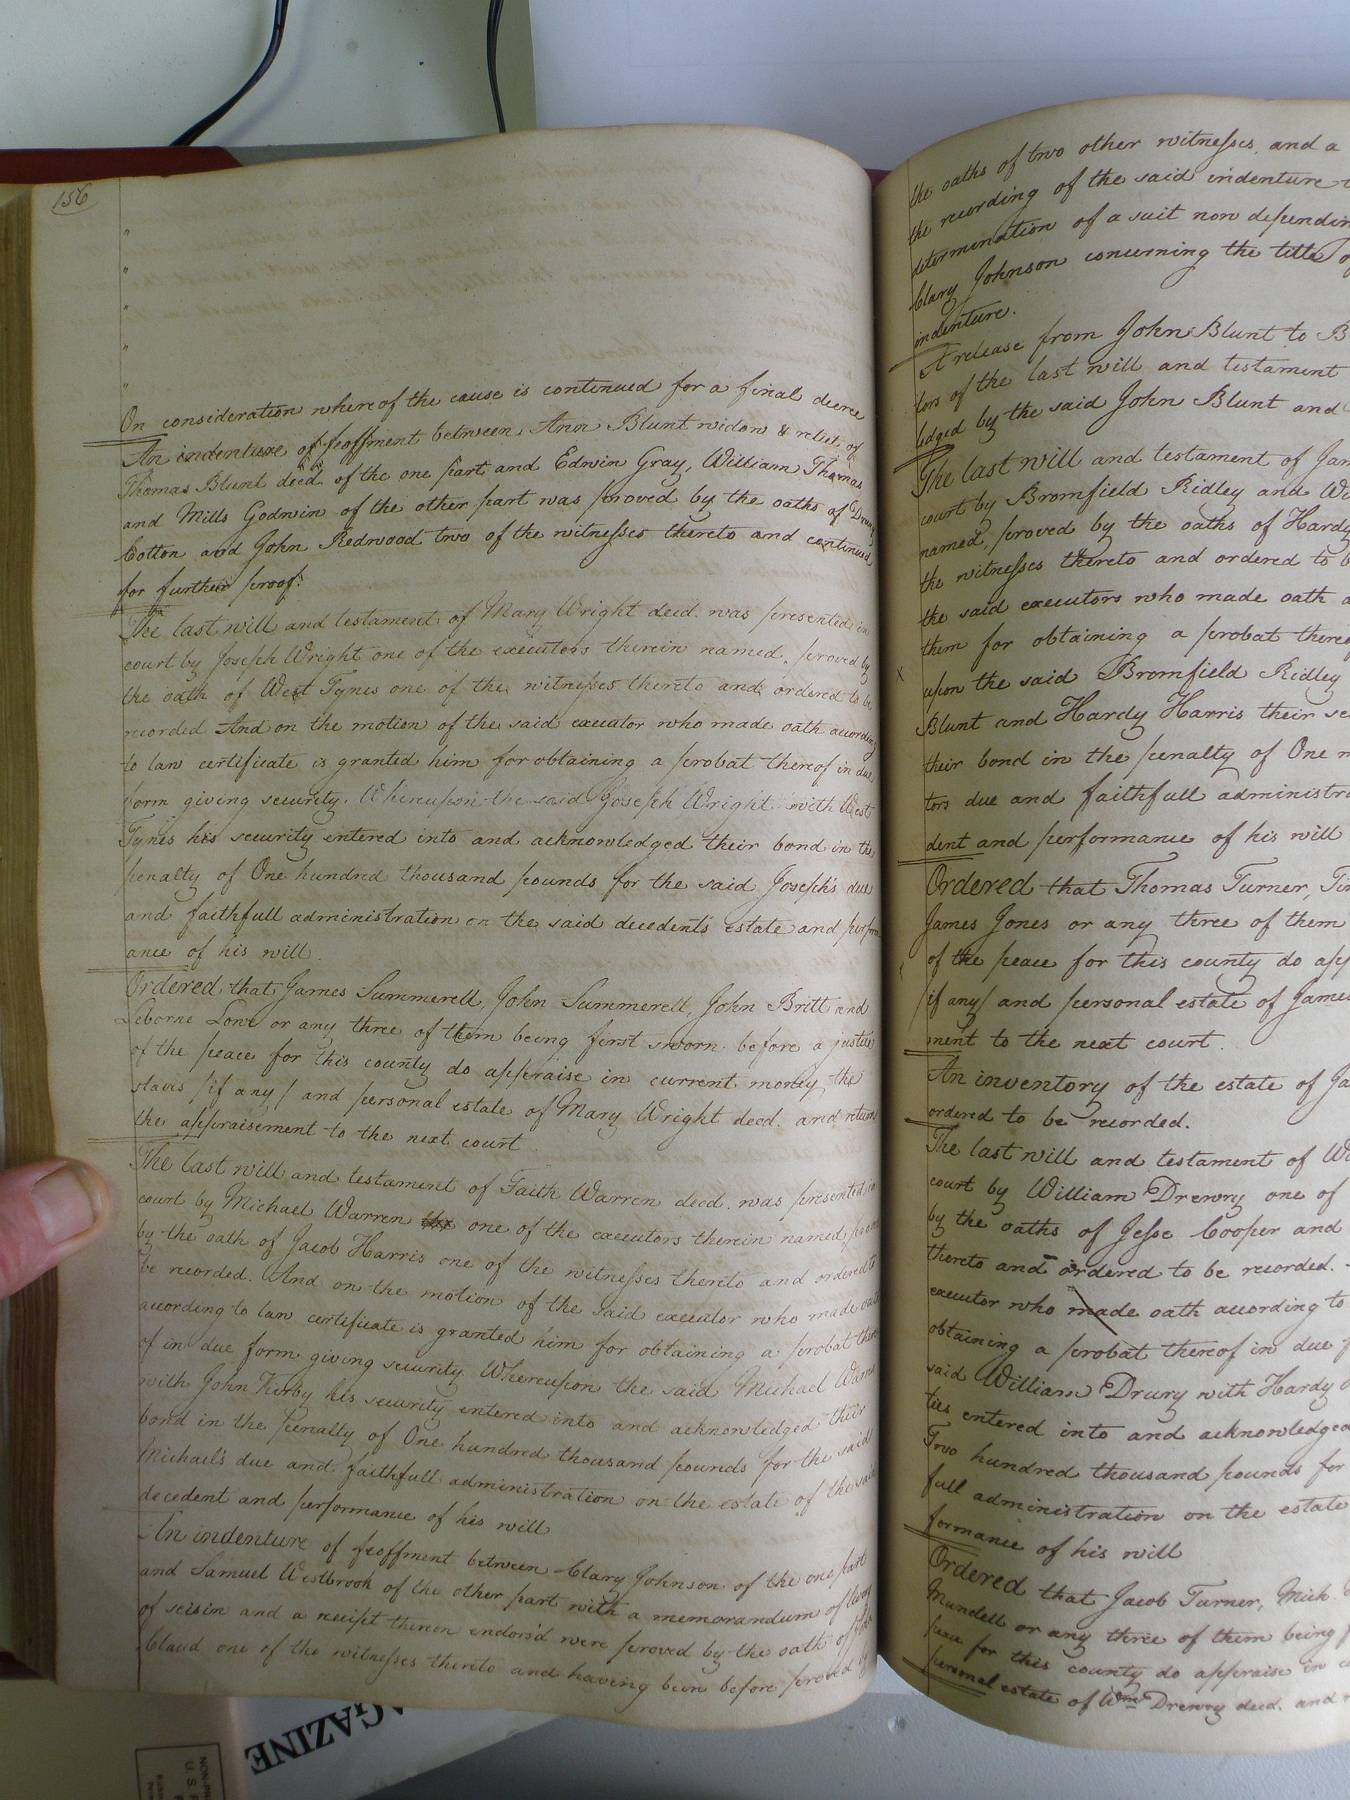 156
On consideration whereof the cause is continued for a final decree
An indenture of feoffment between Ann Blunt widow & relict of
Thomas Blunt decd. of the one part and Edwin Gray, William Thomas
and Mills Godwin of the other part was proved by the oaths of Drury
Cotton and John Redwood two of the witnesses thereto and continued
for further proof.
The last will and testament of Mary Wright decd. was presented in
court by Joseph Wright one of the executors therein named, proved by
the oath of West Tynes one of the witnesses thereto and ordered to be
recorded And on the motion of the said executor who made oath according
to law certificate is granted him for obtaining a probat thereof in due
form giving security. Whereupon the said Joseph Wright with West
Tynes his security entered into and acknowledged their bond in the
penalty of One hundred thousand pounds for the said Joseph's due
and faithfull administration on the said decedents estate and perform
ance of his will.
Ordered that James Summerell, John Summerell, John Britt and
Leborne Lowe or any three of them being first sworn before a justice
of the peace for this county do appraise in current money the
slaves /if any/ and personal estate of Mary Wright decd. and return
the appraisement to the next court
The last will and testament of Faith Warren decd. was presented in
court by Michael Warren one of the executors therein named proved
by the oath of Jacob Harris one of the witnesses thereto and ordered to
be recorded. And on the motion of the said executor who made oath
according to law certificate is granted him for obtaining a probat there
of in due form giving security. Whereupon the said Michael Warren
with John Kirby his security entered into and acknowledged their
bond in the penalty of One hundred thousand pounds for the said
Michael's due and faithfull administration on the estate of the said
decedent and performance of his will
An indenture of feoffment between Clary Johnson of the one part
and Samuel Westbrook of the other part with a memorandum of livery
of seisin and a receipt thereon endors'd were proved by the oath of
Claud one of the witnesses thereto and having been before proved by
the oaths of two other witnesses and a
the recording of the said indenture
determination of a suit now depending
Clary Johnson concerning the title of
indenture.
A release from John Blunt to B
tors of the last will and testament
ledged by the said John Blunt and
The last will and testament of Jam
court by Bromfield Ridley and Wi
named, proved by the oaths of Hardy
the witnesses thereto and ordered to b
the said executors who made oath a
them for obtaining a probat thereof
upon the said Bromfield Ridley
Blunt and Hardy Harris their se
their bond in the penalty of One
tors due and faithfull administra
dent and performance of his will
Ordered that Thomas Turner, Tim
James Jones or any three of them
of the peace for this county do app
/if any/ and personal estate of James
ment to the next court.
An inventory of the estate of Ja
ordered to be recorded.
The last will and testament of Wi
court by William Drewry one of
by the oaths of Jesse Cooper and
thereto and ordered to be recorded.
executor who made oath according to
obtaining a probat thereof in due
said William Drury with Hardy
ties entered into and acknowledged
Two hundred thousand pounds for
full administration on the estate
formance of his will
Ordered that Jacob Turner, Mich.
Mundell or any three of them being
peace for this county do appraise in
personal estate of Wm Drewry decd. and
AGAZINE
U. S.